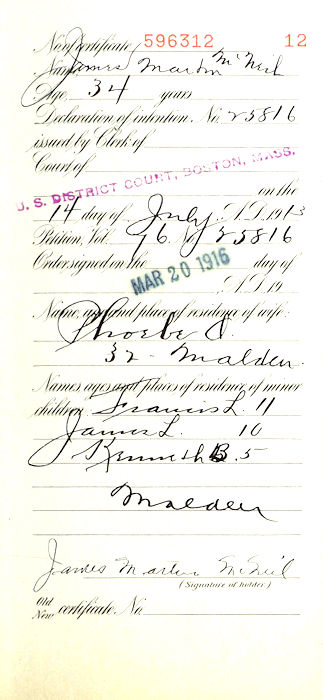 No. of certificate 596312 12
Name James Martin McNeil
Age, 34 years
Declaration of intention, No. 25816
issued by Clerk of
Court of
U. S. DISTRICT COURT, BOSTON, MASS.
on the
14 day of July, A.D. 1913
Petition, Vol. 76 No. 25816
Order signed on the day of
MAR 20 1916
, A.D. 19
Name, age, and place of residence of wife:
Phoebe J.
32 - Malden.
Names, ages, and places of residence of minor
children: Francis L. 11
James L. 10
Kenneth B. 5
Malden
James Martin McNeil
(Signature of holder)
Old
New certificate, No.